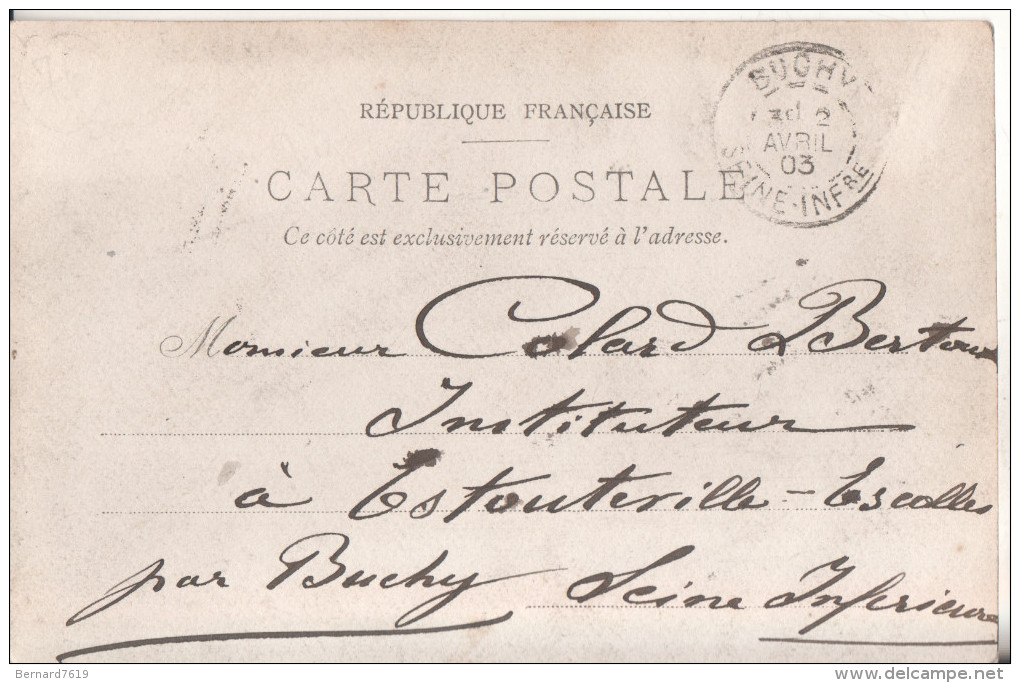 RÉPUBLIQUE FRANÇAISE
BUCHY
2
AVRIL
03
SEINE-INFRE
CARTE POSTALE
Ce côté est exclusivement réservé à l'adresse.
Monsieur Colard Bertoux
Instituteur
à Estouteville-Escalles
par Buchy Seine Inférieure
Bernard7619
www.delcampe.net